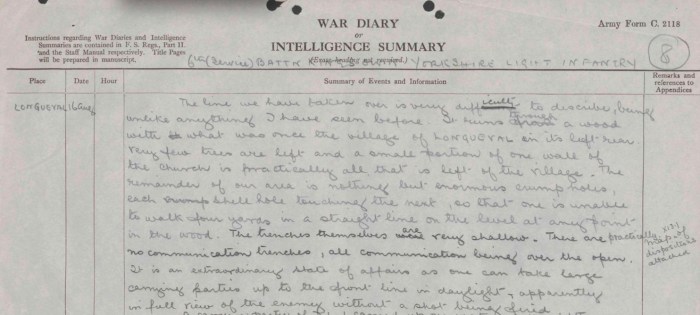 WAR DIARY
or
INTELLIGENCE SUMMARY
Army Form C. 2118
Instructions regarding War Diaries and Intelligence
Summaries are contained in F. S. Regs., Part II.
and the Staff Manual respectively. Title Pages
will be prepared in manuscript.
(Erase heading not required.)
6th (Service) BATTN KING'S OWN YORKSHIRE LIGHT INFANTRY
8
Place
Date
Hour
Summary of Events and Information
Remarks and
references to
Appendices
LONGUEVAL
16 Aug
The line we have taken over is very difficult to describe, being
unlike anything I have seen before. It runs through a wood
with what was once the village of LONGUEVAL on its left rear.
Very few trees are left and a small portion of one wall of
the church is practically all that is left of the village. The
remainder of our area is nothing but enormous crump holes,
each shell hole touching the next, so that one is unable
to walk four yards in a straight line on the level at any point
in the wood. The trenches themselves are very shallow. There are practically
no communication trenches, all communication being over the open.
It is an extraordinary state of affairs as one can take large
carrying parties up to the front line in daylight, apparently
in full view of the enemy without a shot being fired.
Map of
dispositions
attached